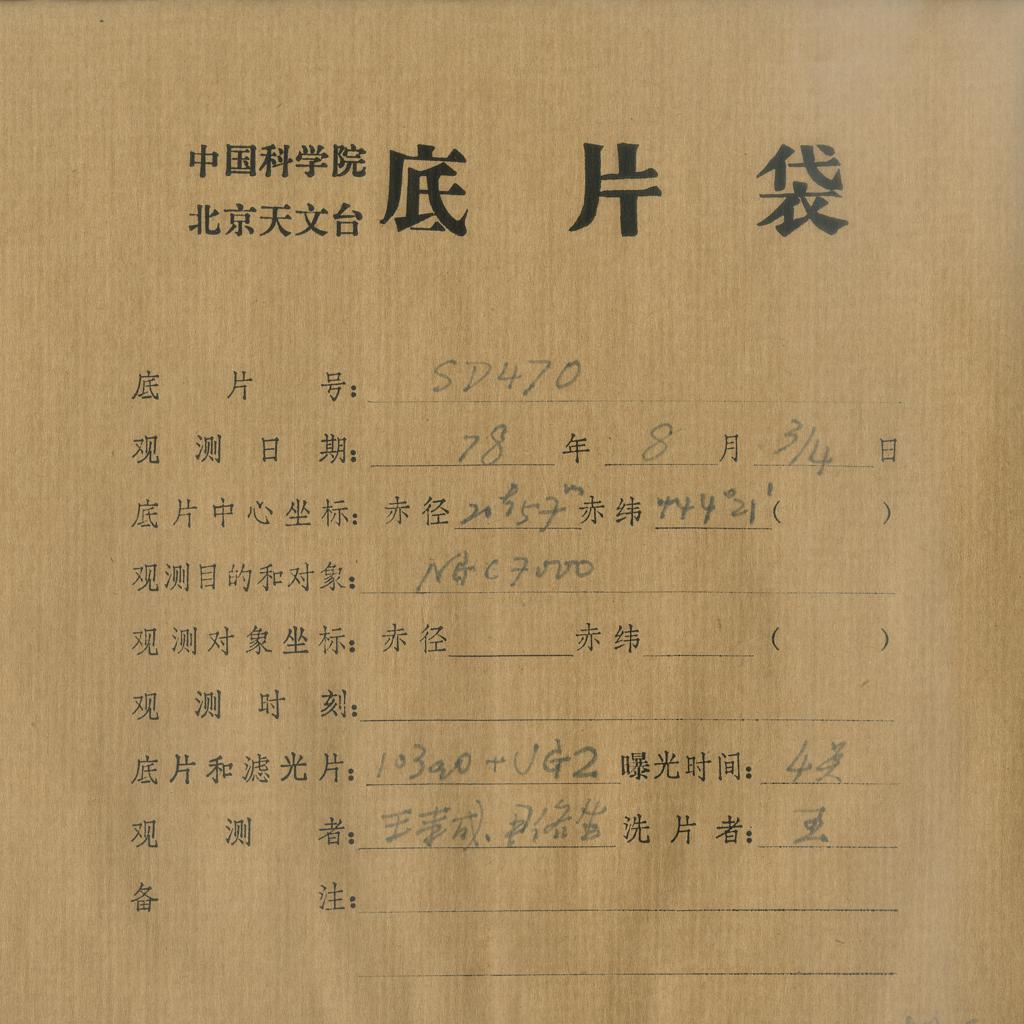 中国科学院
北京天文台
底片袋
底片号：SD470
观测日期：78年8月3/4日
底片中心坐标：赤径20ʰ57ᵐ赤纬+44°21′（ ）
观测目的和对象：NGC7000
观测对象坐标：赤径 赤纬 （ ）
观测时刻：
底片和滤光片：103aO+UG2 曝光时间：4
观测者：王 洗片者：王
备注：